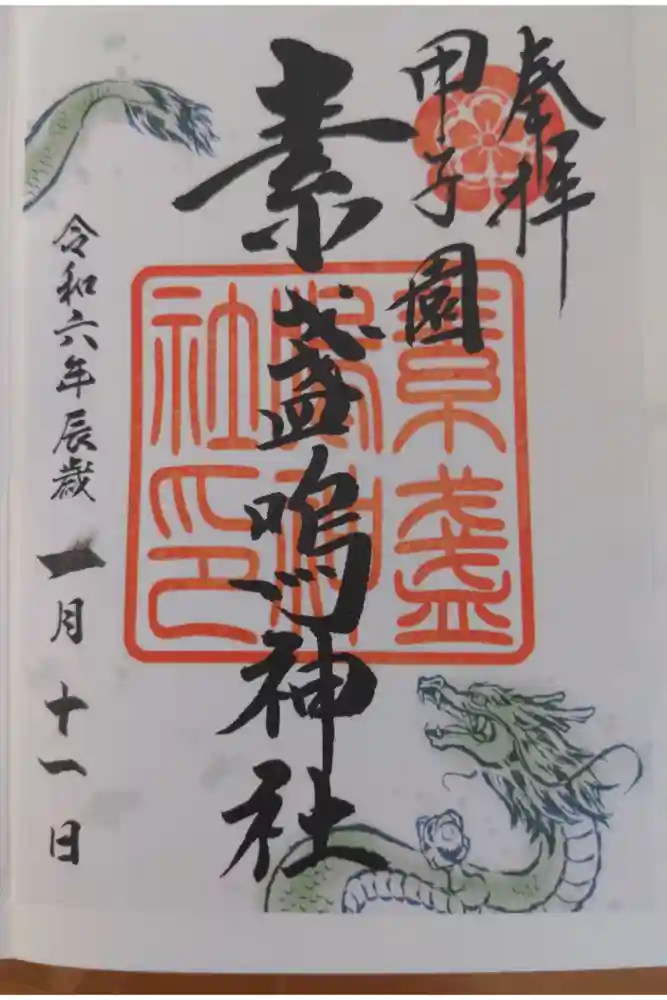 奉拝
甲子園
素盞嗚神社
令和六年辰歳
一月十一日
素盞
嗚神
社印